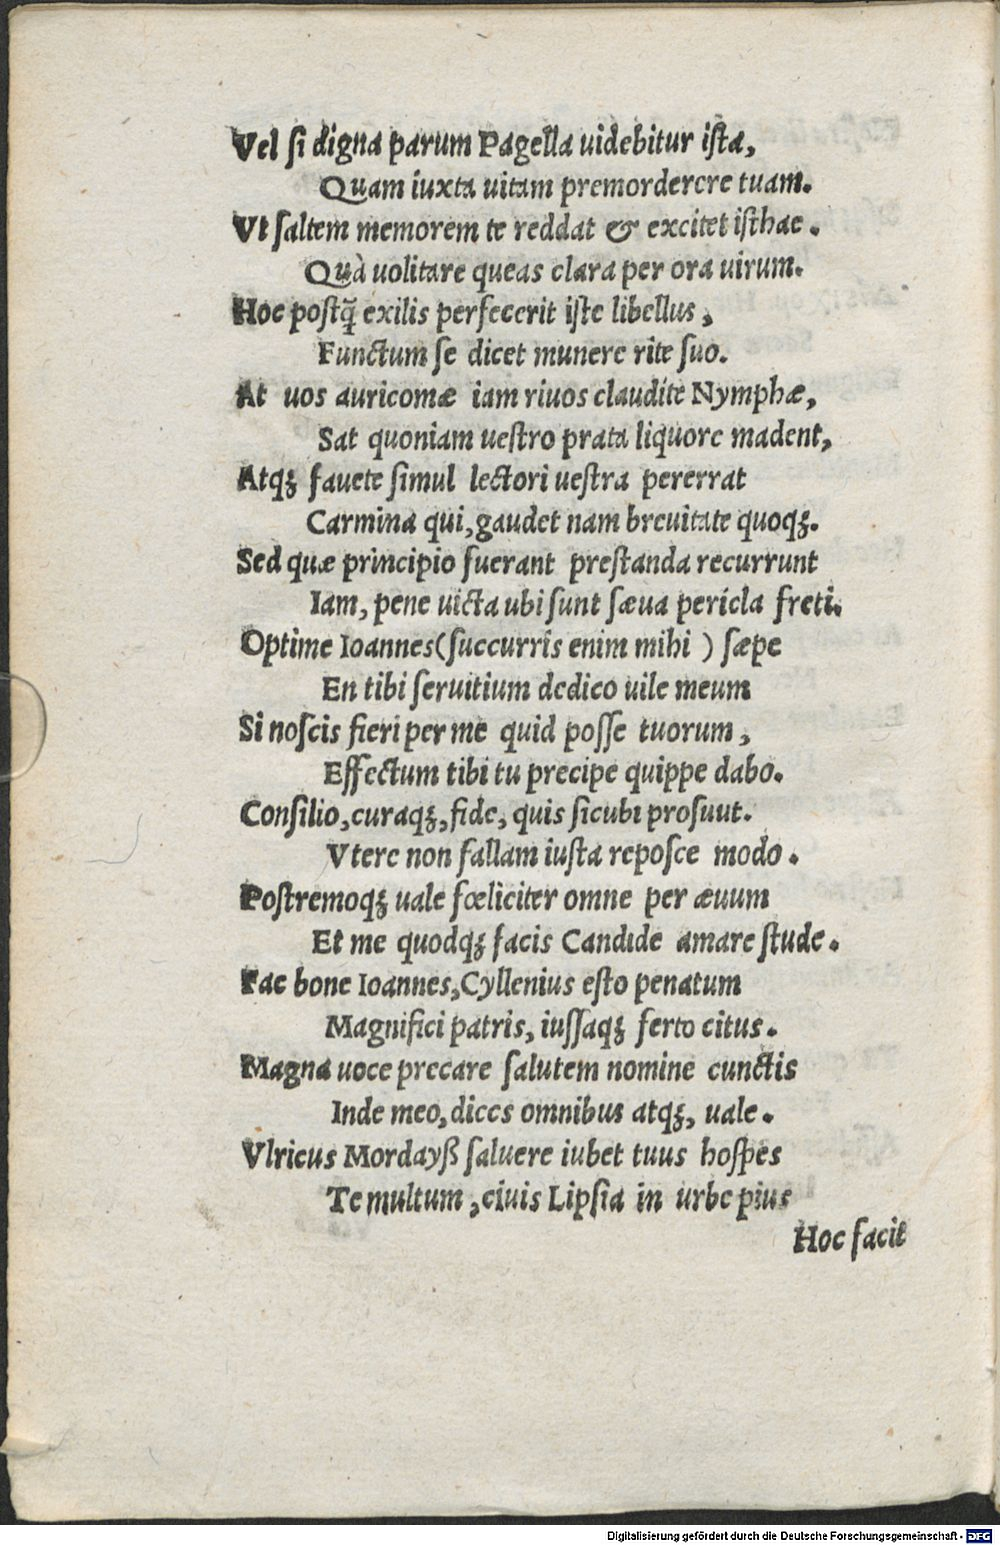 Vel ſi digna parum Pagella uidebitur iſta,
Quam iuxta uitam premordercre tuam.
Vt ſaltem memorem te reddat & excitet iſthac.
Quà uolitare queas clara per ora uirum.
Hoc poſtq̃ exilis perfecerit iſte libellus,
Functum ſe dicet munere rite ſuo.
At uos auricomæ iam riuos claudite Nymphæ,
Sat quoniam ueſtro prata liquore madent,
Atqꝫ fauete ſimul lectori ueſtra pererrat
Carmina qui, gaudet nam breuitate quoqꝫ.
Sed quæ principio fuerant preſtanda recurrunt
Iam, pene uicta ubi ſunt ſæua pericla freti.
Optime Ioannes (ſuccurris enim mihi) ſæpe
En tibi ſeruitium dedico uile meum
Si noſcis fieri per me quid poſſe tuorum,
Effectum tibi tu precipe quippe dabo.
Conſilio, curaqꝫ, fide, quis ſicubi proſuut.
Vtere non fallam iuſta repoſce modo.
Poſtremoqꝫ uale fœliciter omne per æuum
Et me quodqꝫ facis Candide amare ſtude.
Fac bone Ioannes, Cyllenius eſto penatum
Magnifici patris, iuſſaqꝫ ferto citus.
Magna uoce precare ſalutem nomine cunctis
Inde meo, dices omnibus atqꝫ, uale.
Vlricus Mordayß ſaluere iubet tuus hoſpes
Te multum, ciuis Lipſia in urbe pius
Hoc facit
Digitalisierung gefördert durch die Deutsche Forschungsgemeinschaft - DFG